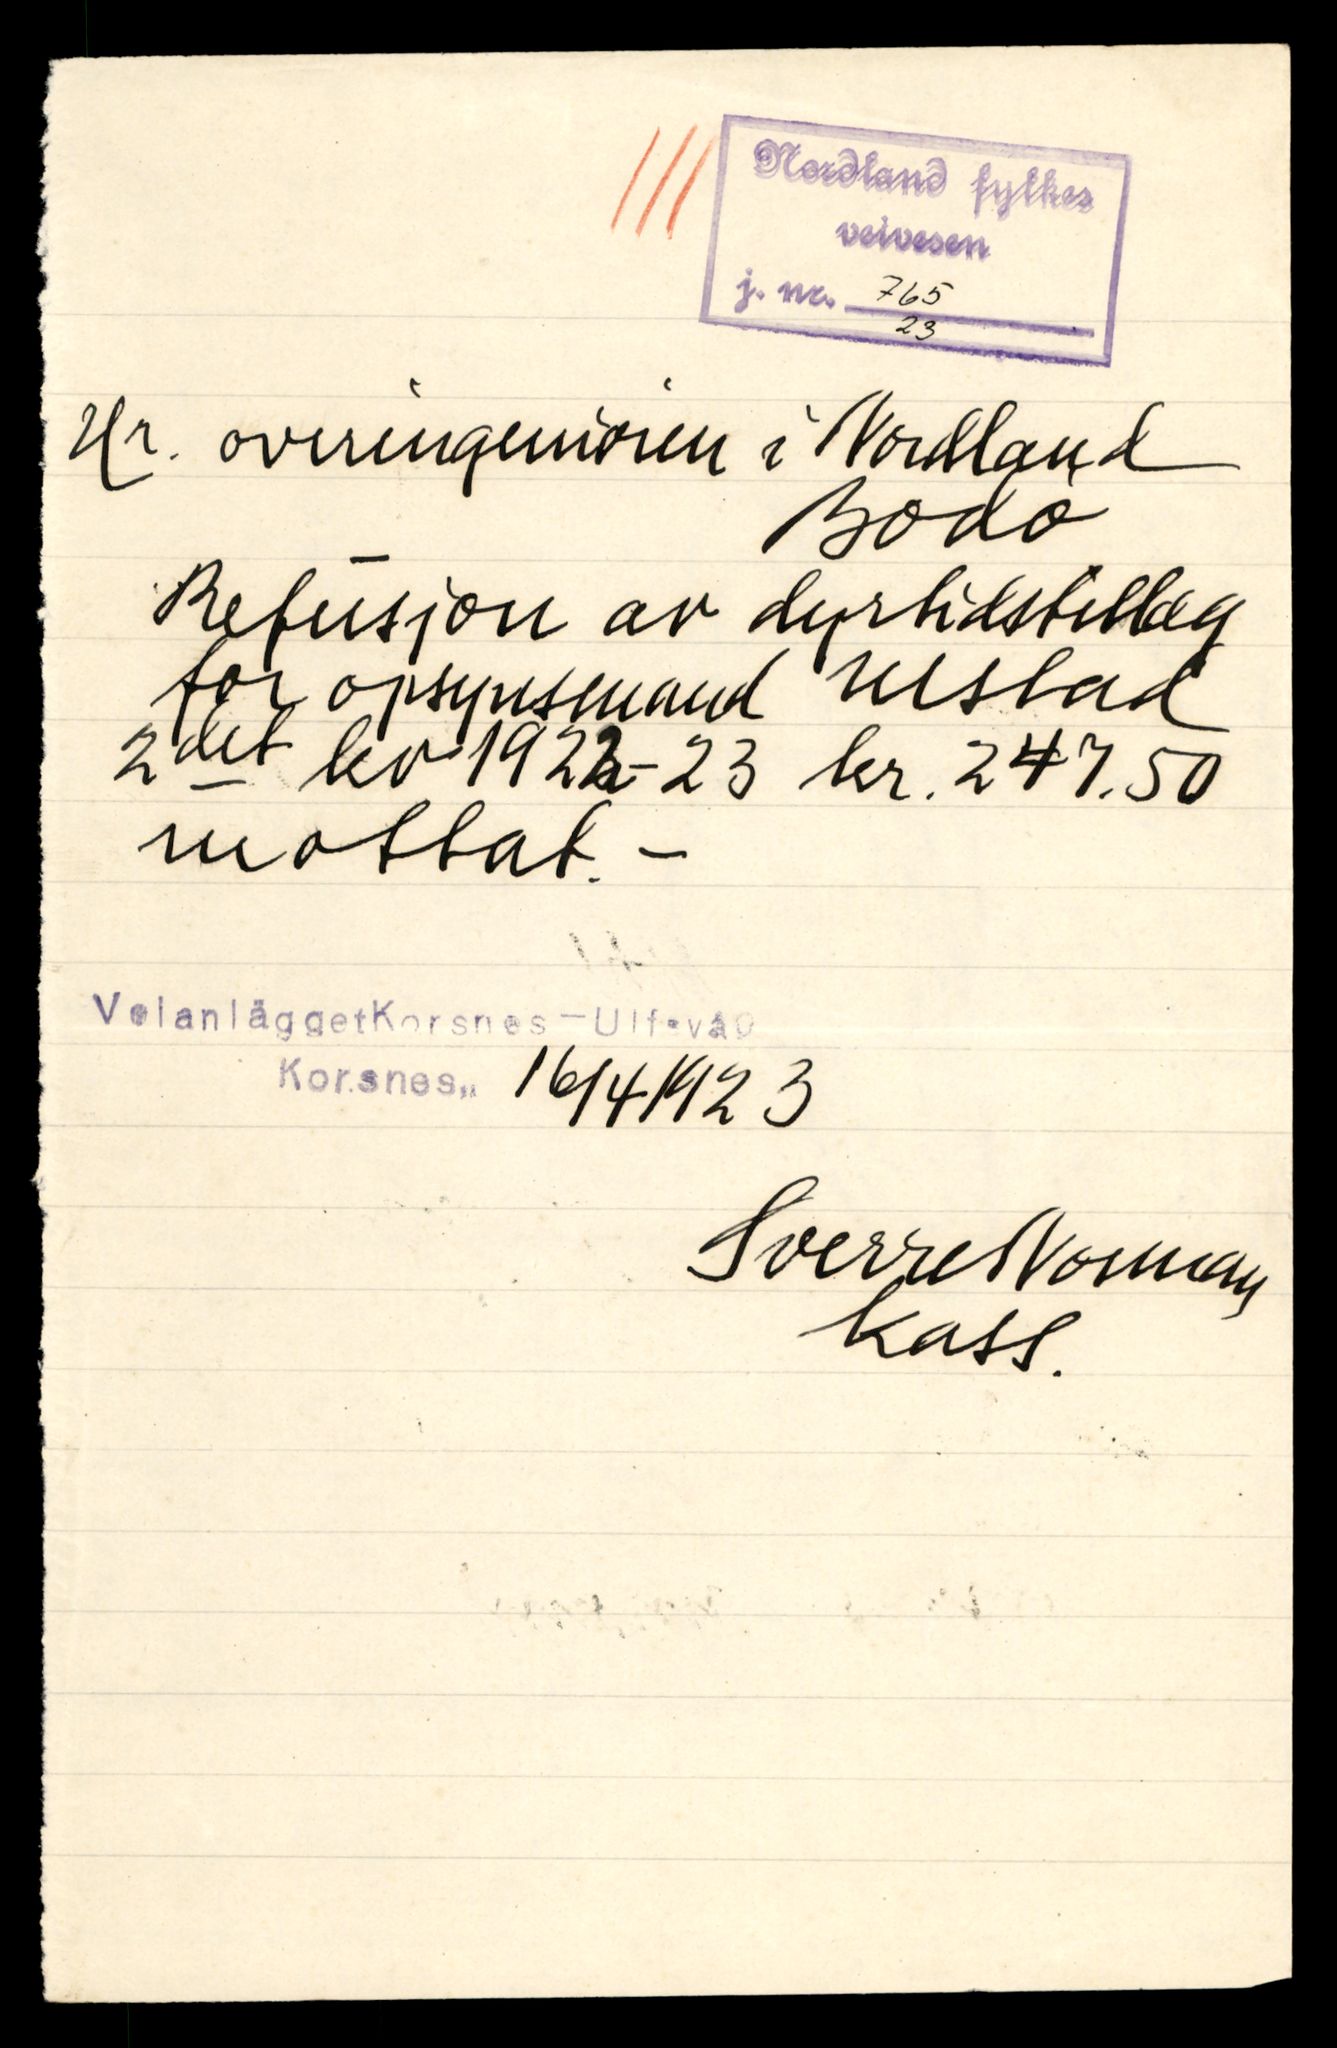 Nordland fylkes
veivesen
j. nr. 765
23
Hr. overingeniøren i Nordland
Bodø
Refusjon av dyrtidstillæg
for opsynsmand
2det kv 1922-23 kr. 247.50
mottat. -
Veianlägget Korsnes-Ulfsvåg
Korsnes,, 16/4 1923
Sverre Norman
kass.